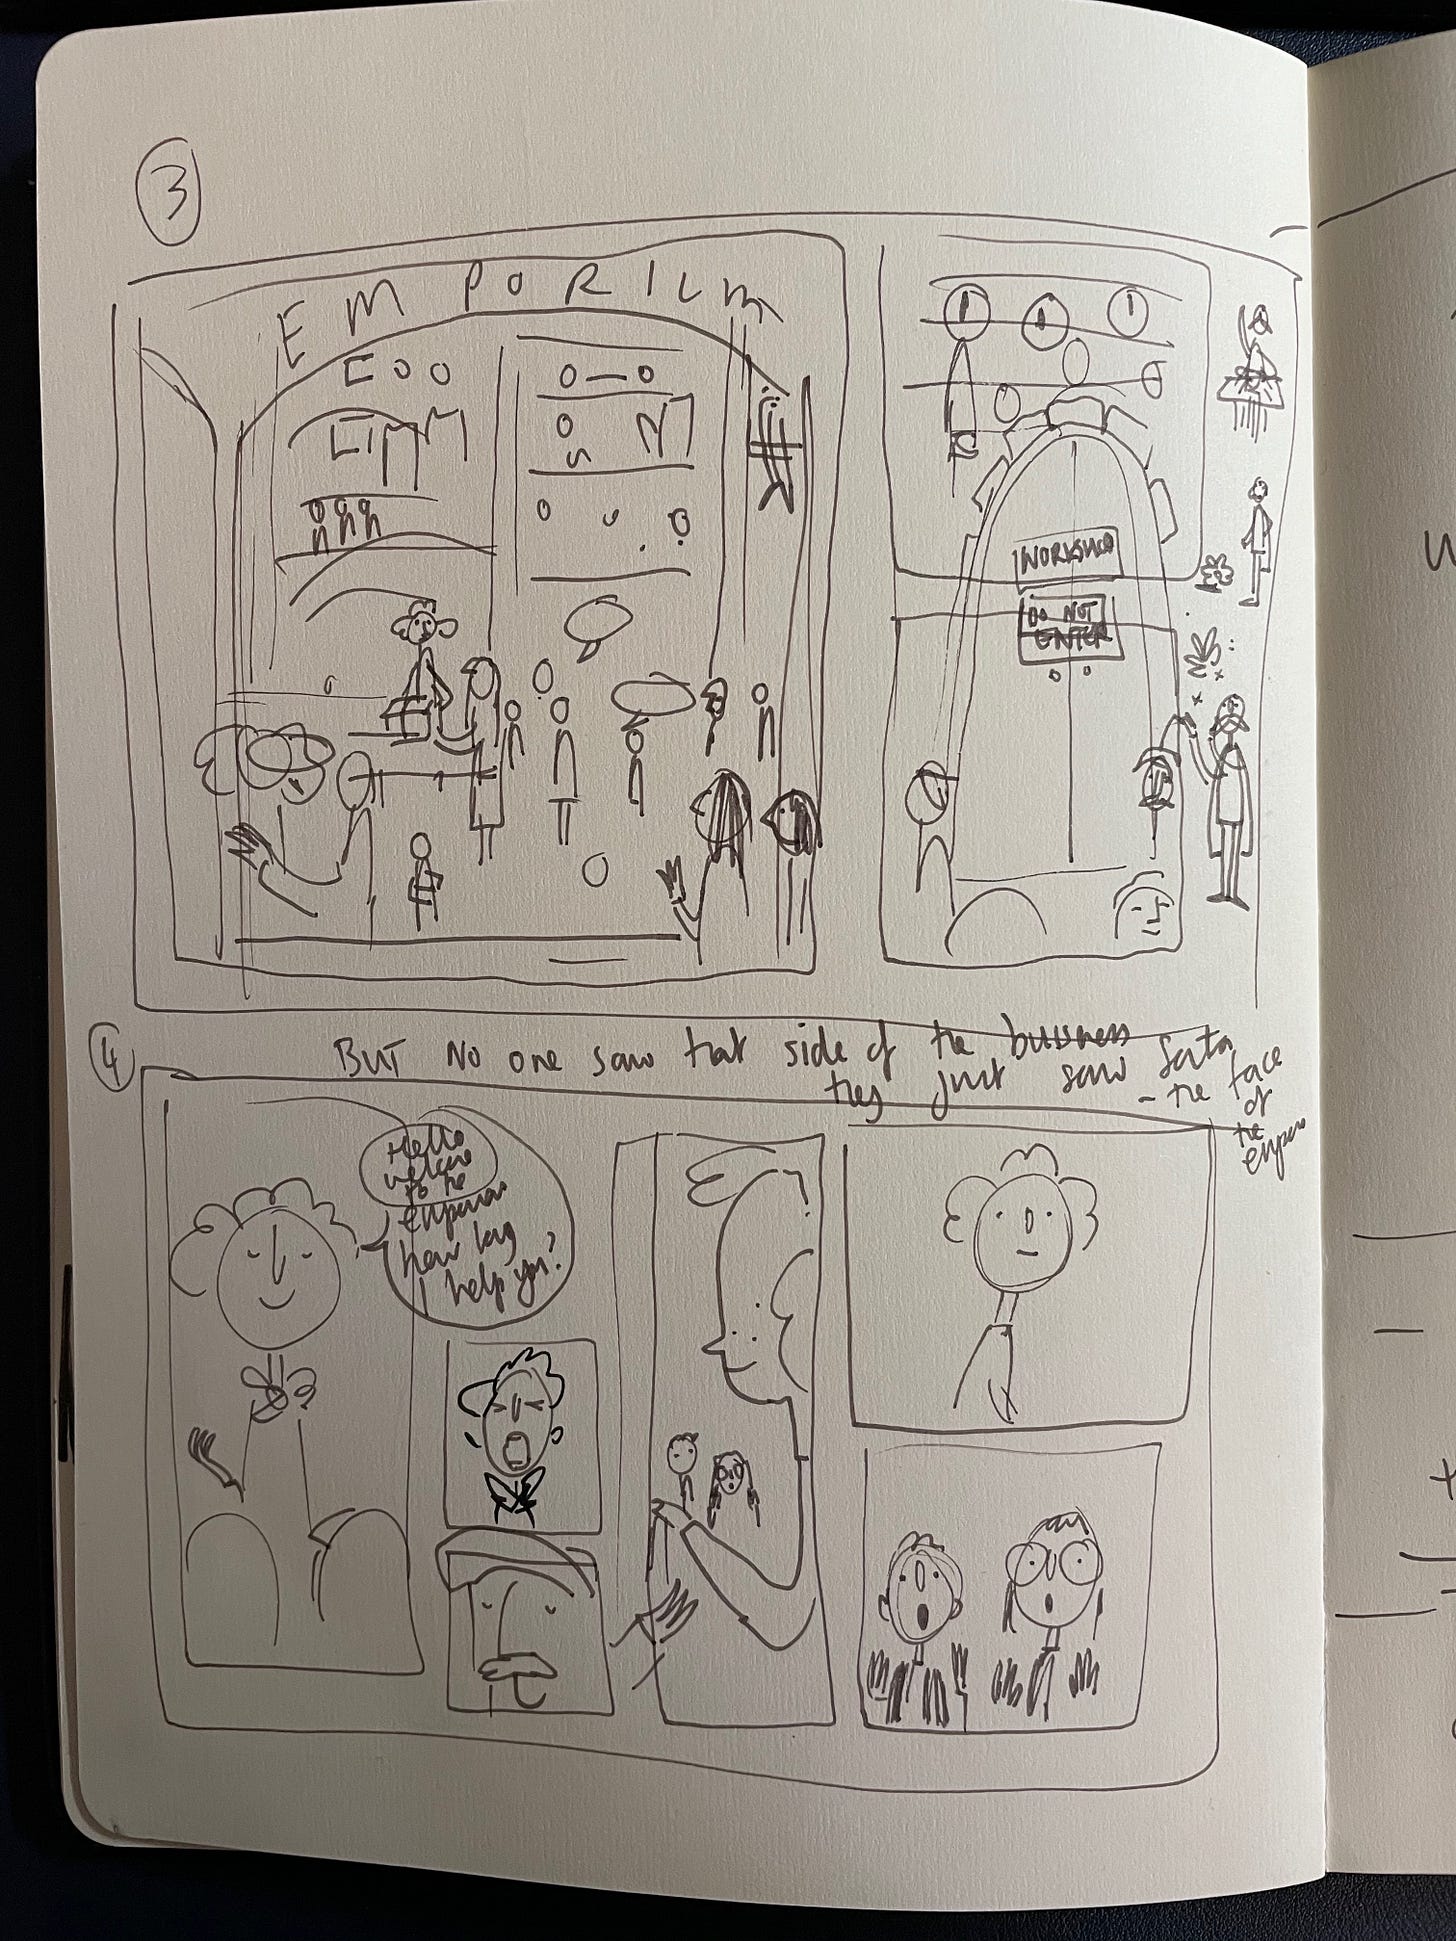 3
EMPORIUM
WORKSHOP
DO NOT
ENTER
4
BUT NO one saw that side of the business
they just saw
- the face
of
the
Hello
welcome
to the
how may
I help you?